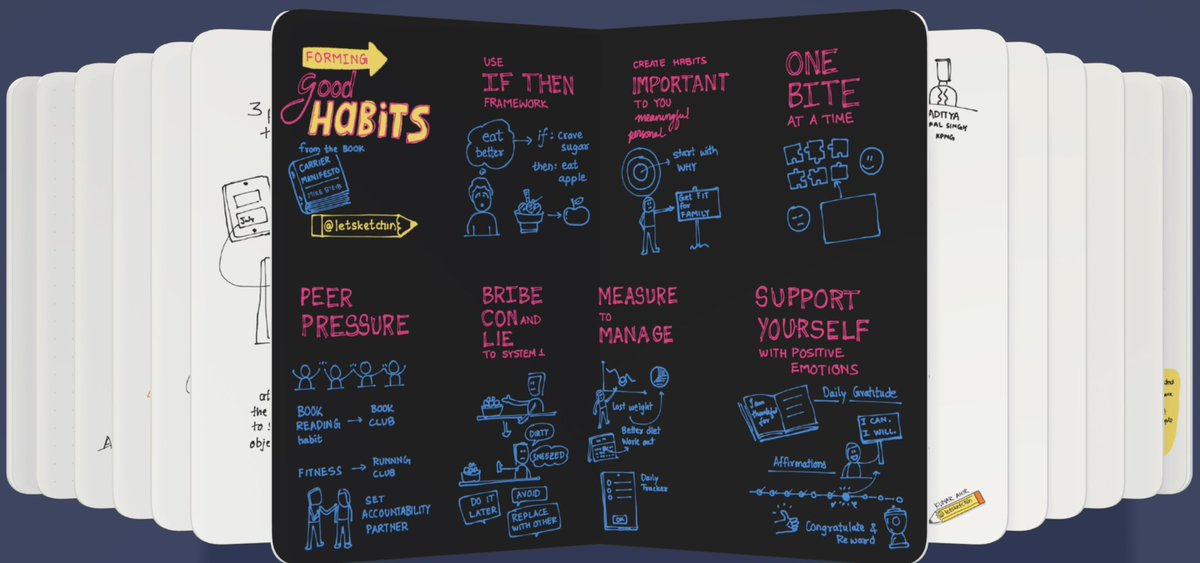 FORMING
good
HABITS
from the BOOK
CARRIER
MANIFESTO
MIKE STEIB
@letsketchin
USE
IF THEN
FRAMEWORK
eat
better
if: crave
sugar
then: eat
apple
CREATE HABITS
IMPORTANT
TO YOU
meaningful
personal
start with
WHY
Get FIT
for
FAMILY
ONE
BITE
AT A TIME
PEER
PRESSURE
BOOK
READING
habit
BOOK
CLUB
FITNESS
RUNNNG
CLUB
SET
ACCOUNTABILITY
PARTNER
BRIBE
CON AND
LIE
TO SYSTEM 1
DIRTY
SNEEZED
DO IT
LATER
AVOID
REPLACE
WITH OTHER
MEASURE
TO
MANAGE
Lost weight
Better diet
Work out
Daily
Tracker
OK
SUPPORT
YOURSELF
WITH POSITIVE
EMOTIONS
I am
thankful
for
Daily Gratitude
I CAN.
I WILL.
Affirmations
Congratulate &
Reward
July
the
to
obje
ADITYA
PAL SINGH
KPNG
KUMAR AHIR
@letsketchin